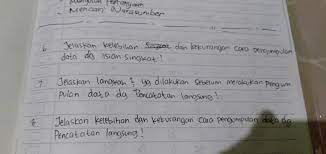 - Mencari Narasumber
6. Jelaskan kelebihan dan kekurangan cara pengumpulan
data dg isian singkat!
7. Jelaskan langkah 2 yg dilakukan sebelum melakukan pengum
pulan data dg Pencatatan langsung!
8. Jelaskan kelebihan dan kekurangan cara pengumpulan data dg
Pencatatan langsung!